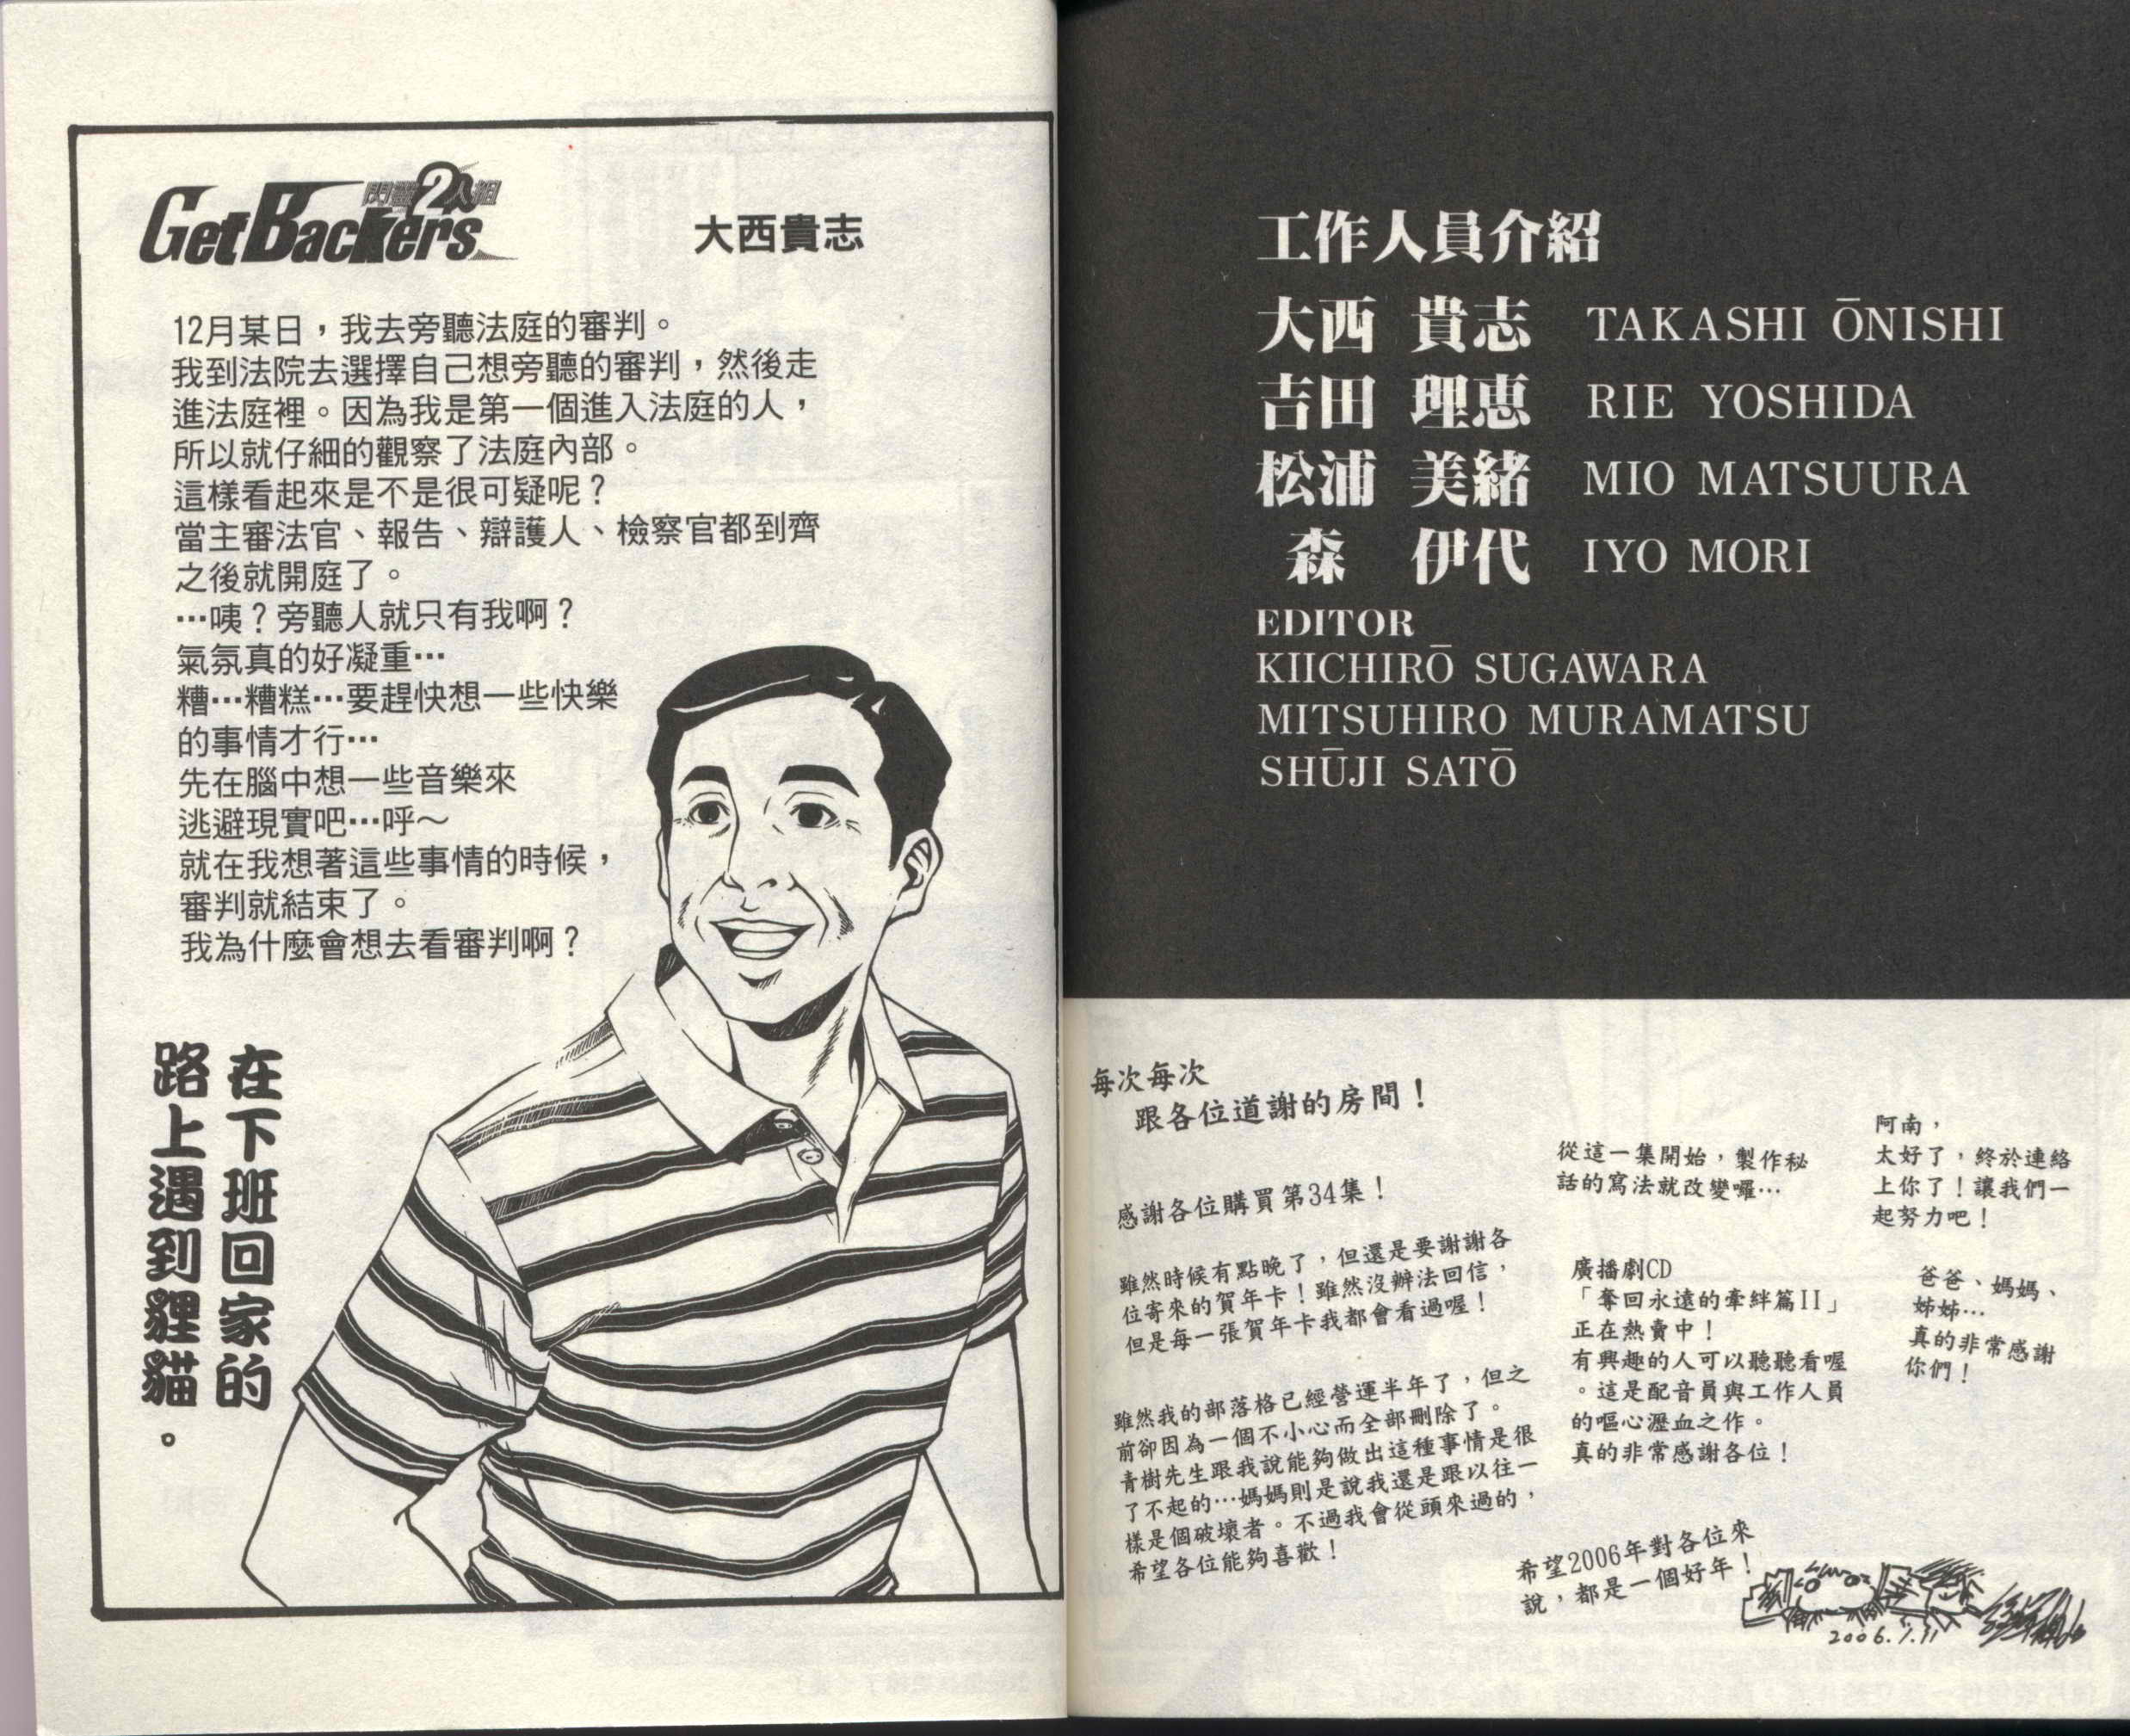 GetBackers
閃靈2人組
大西貴志
12月某日，我去旁聽法庭的審判。
我到法院去選擇自己想旁聽的審判，然後走
進法庭裡。因為我是第一個進入法庭的人，
所以就仔細的觀察了法庭內部。
這樣看起來是不是很可疑呢？
當主審法官、報告、辯護人、檢察官都到齊
之後就開庭了。
…咦？旁聽人就只有我啊？
氣氛真的好凝重…
糟…糟糕…要趕快想一些快樂
的事情才行…
先在腦中想一些音樂來
逃避現實吧…呼～
就在我想著這些事情的時候，
審判就結束了。
我為什麼會想去看審判啊？
在下班回家的
路上遇到貍貓。
工作人員介紹
大西 貴志 TAKASHI ŌNISHI
吉田 理恵 RIE YOSHIDA
松浦 美緒 MIO MATSUURA
森 伊代 IYO MORI
EDITOR
KIICHIRŌ SUGAWARA
MITSUHIRO MURAMATSU
SHŪJI SATŌ
每次每次
跟各位道謝的房間！
感謝各位購買第34集！
雖然時候有點晚了，但還是要謝謝各
位寄來的賀年卡！雖然沒辦法回信，
但是每一張賀年卡我都會看過喔！
雖然我的部落格已經營運半年了，但之
前卻因為一個不小心而全部刪除了。
青樹先生跟我說能夠做出這種事情是很
了不起的…媽媽則是說我還是跟以往一
樣是個破壞者。不過我會從頭來過的，
希望各位能夠喜歡！
從這一集開始，製作秘
話的寫法就改變囉…
廣播劇CD
「奪回永遠的牽絆篇II」
正在熱賣中！
有興趣的人可以聽聽看喔
。這是配音員與工作人員
的嘔心瀝血之作。
真的非常感謝各位！
希望2006年對各位來
說，都是一個好年！
阿南，
太好了，終於連絡
上你了！讓我們一
起努力吧！
爸爸、媽媽、
姊姊…
真的非常感謝
你們！
2006.1.11